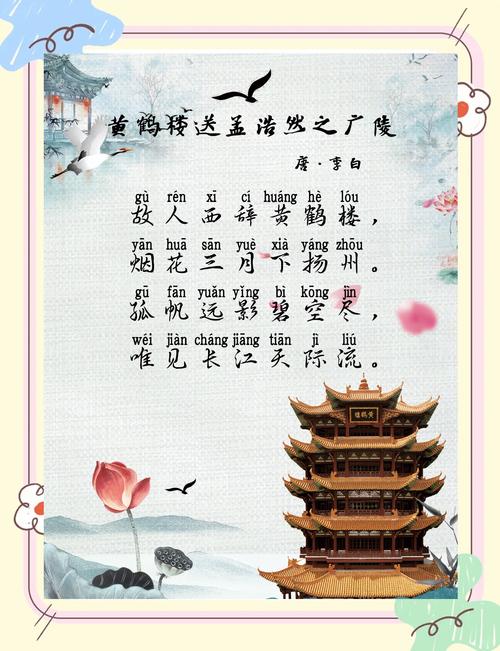 黄鹤楼送孟浩然之广陵
唐·李白
gù rén xī cí huáng hè lóu
故人西辞黄鹤楼，
yān huā sān yuè xià yáng zhōu
烟花三月下扬州。
gū fān yuǎn yǐng bì kōng jìn
孤帆远影碧空尽，
wéi jiàn cháng jiāng tiān jì liú
唯见长江天际流。
黄鹤楼